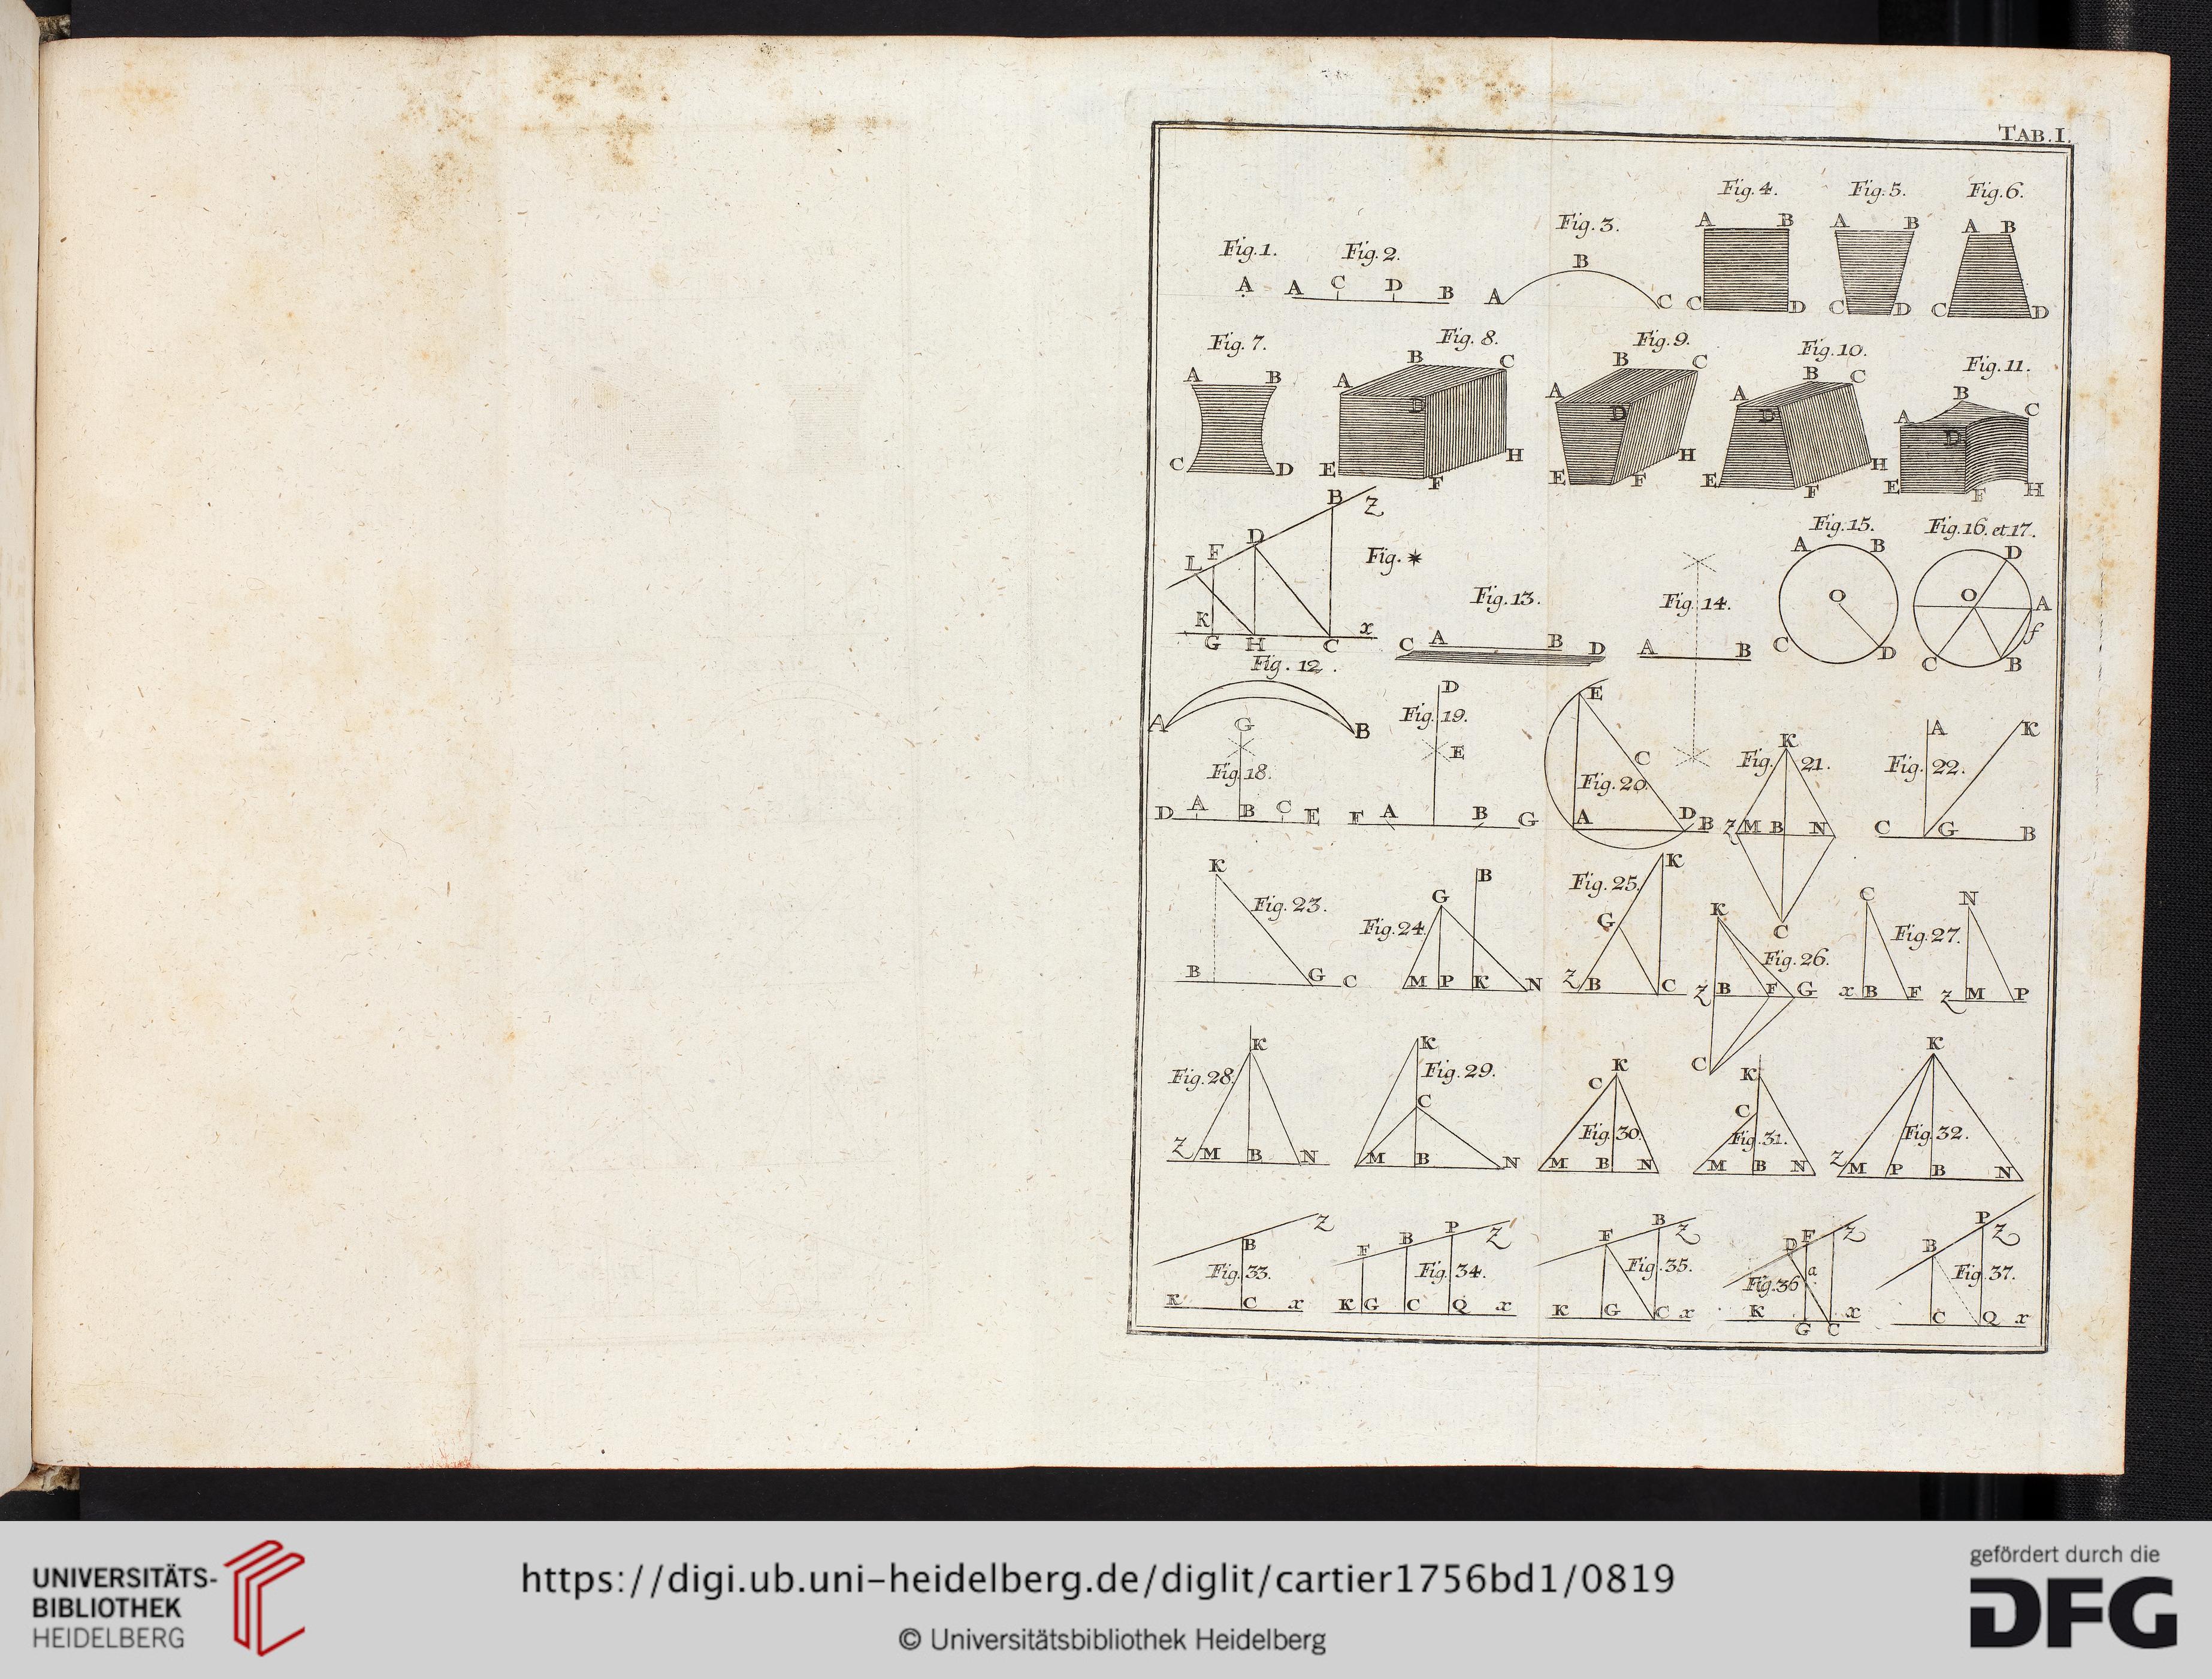 TAB. I.
Fig. 4. Fig. 5. Fig. 6.
Fig. 3.
A B A B A B
Fig. 1. Fig. 2.
B
A A C D B A C C D C D C D
Fig. 7. Fig. 8. Fig. 9. Fig. 10. Fig. 11.
A B A B C D A B C D A B C D A B C D
C D E F H E F H E F H E F H
B Z
D
L F
Fig. *
K x
G H C
Fig. 13.
C A B D
Fig. 14.
A B
Fig. 15.
A B
O
C D
Fig. 16. et 17.
D
O A
f
C B
Fig. 12.
A B
G
Fig. 18.
D A B C E
D
Fig. 19.
E
F A B G
E
C
Fig. 20.
A D B
K
Fig. 21.
Z M B N
C
A K
Fig. 22.
C G B
K
Fig. 23.
B G C
B
G
Fig. 24.
M P K N
K
Fig. 25.
G
Z B C
K
Fig. 26.
Z B F G
C
C N
Fig. 27.
x B F Z M P
K
Fig. 28.
Z M B N
K
Fig. 29.
C
M B N
K
C
Fig. 30.
M B N
K
C
Fig. 31.
M B N
K
Fig. 32.
Z M P B N
Z
B
Fig. 33.
K C x
F B P Z
Fig. 34.
K G C Q x
F B Z
Fig. 35.
K G C x
D F Z
a
Fig. 36
K x
G C
P
Z
B
Fig. 37.
C Q x
UNIVERSITÄTS-
BIBLIOTHEK
HEIDELBERG
https://digi.ub.uni-heidelberg.de/diglit/cartier1756bd1/0819
© Universitätsbibliothek Heidelberg
gefördert durch die
DFG